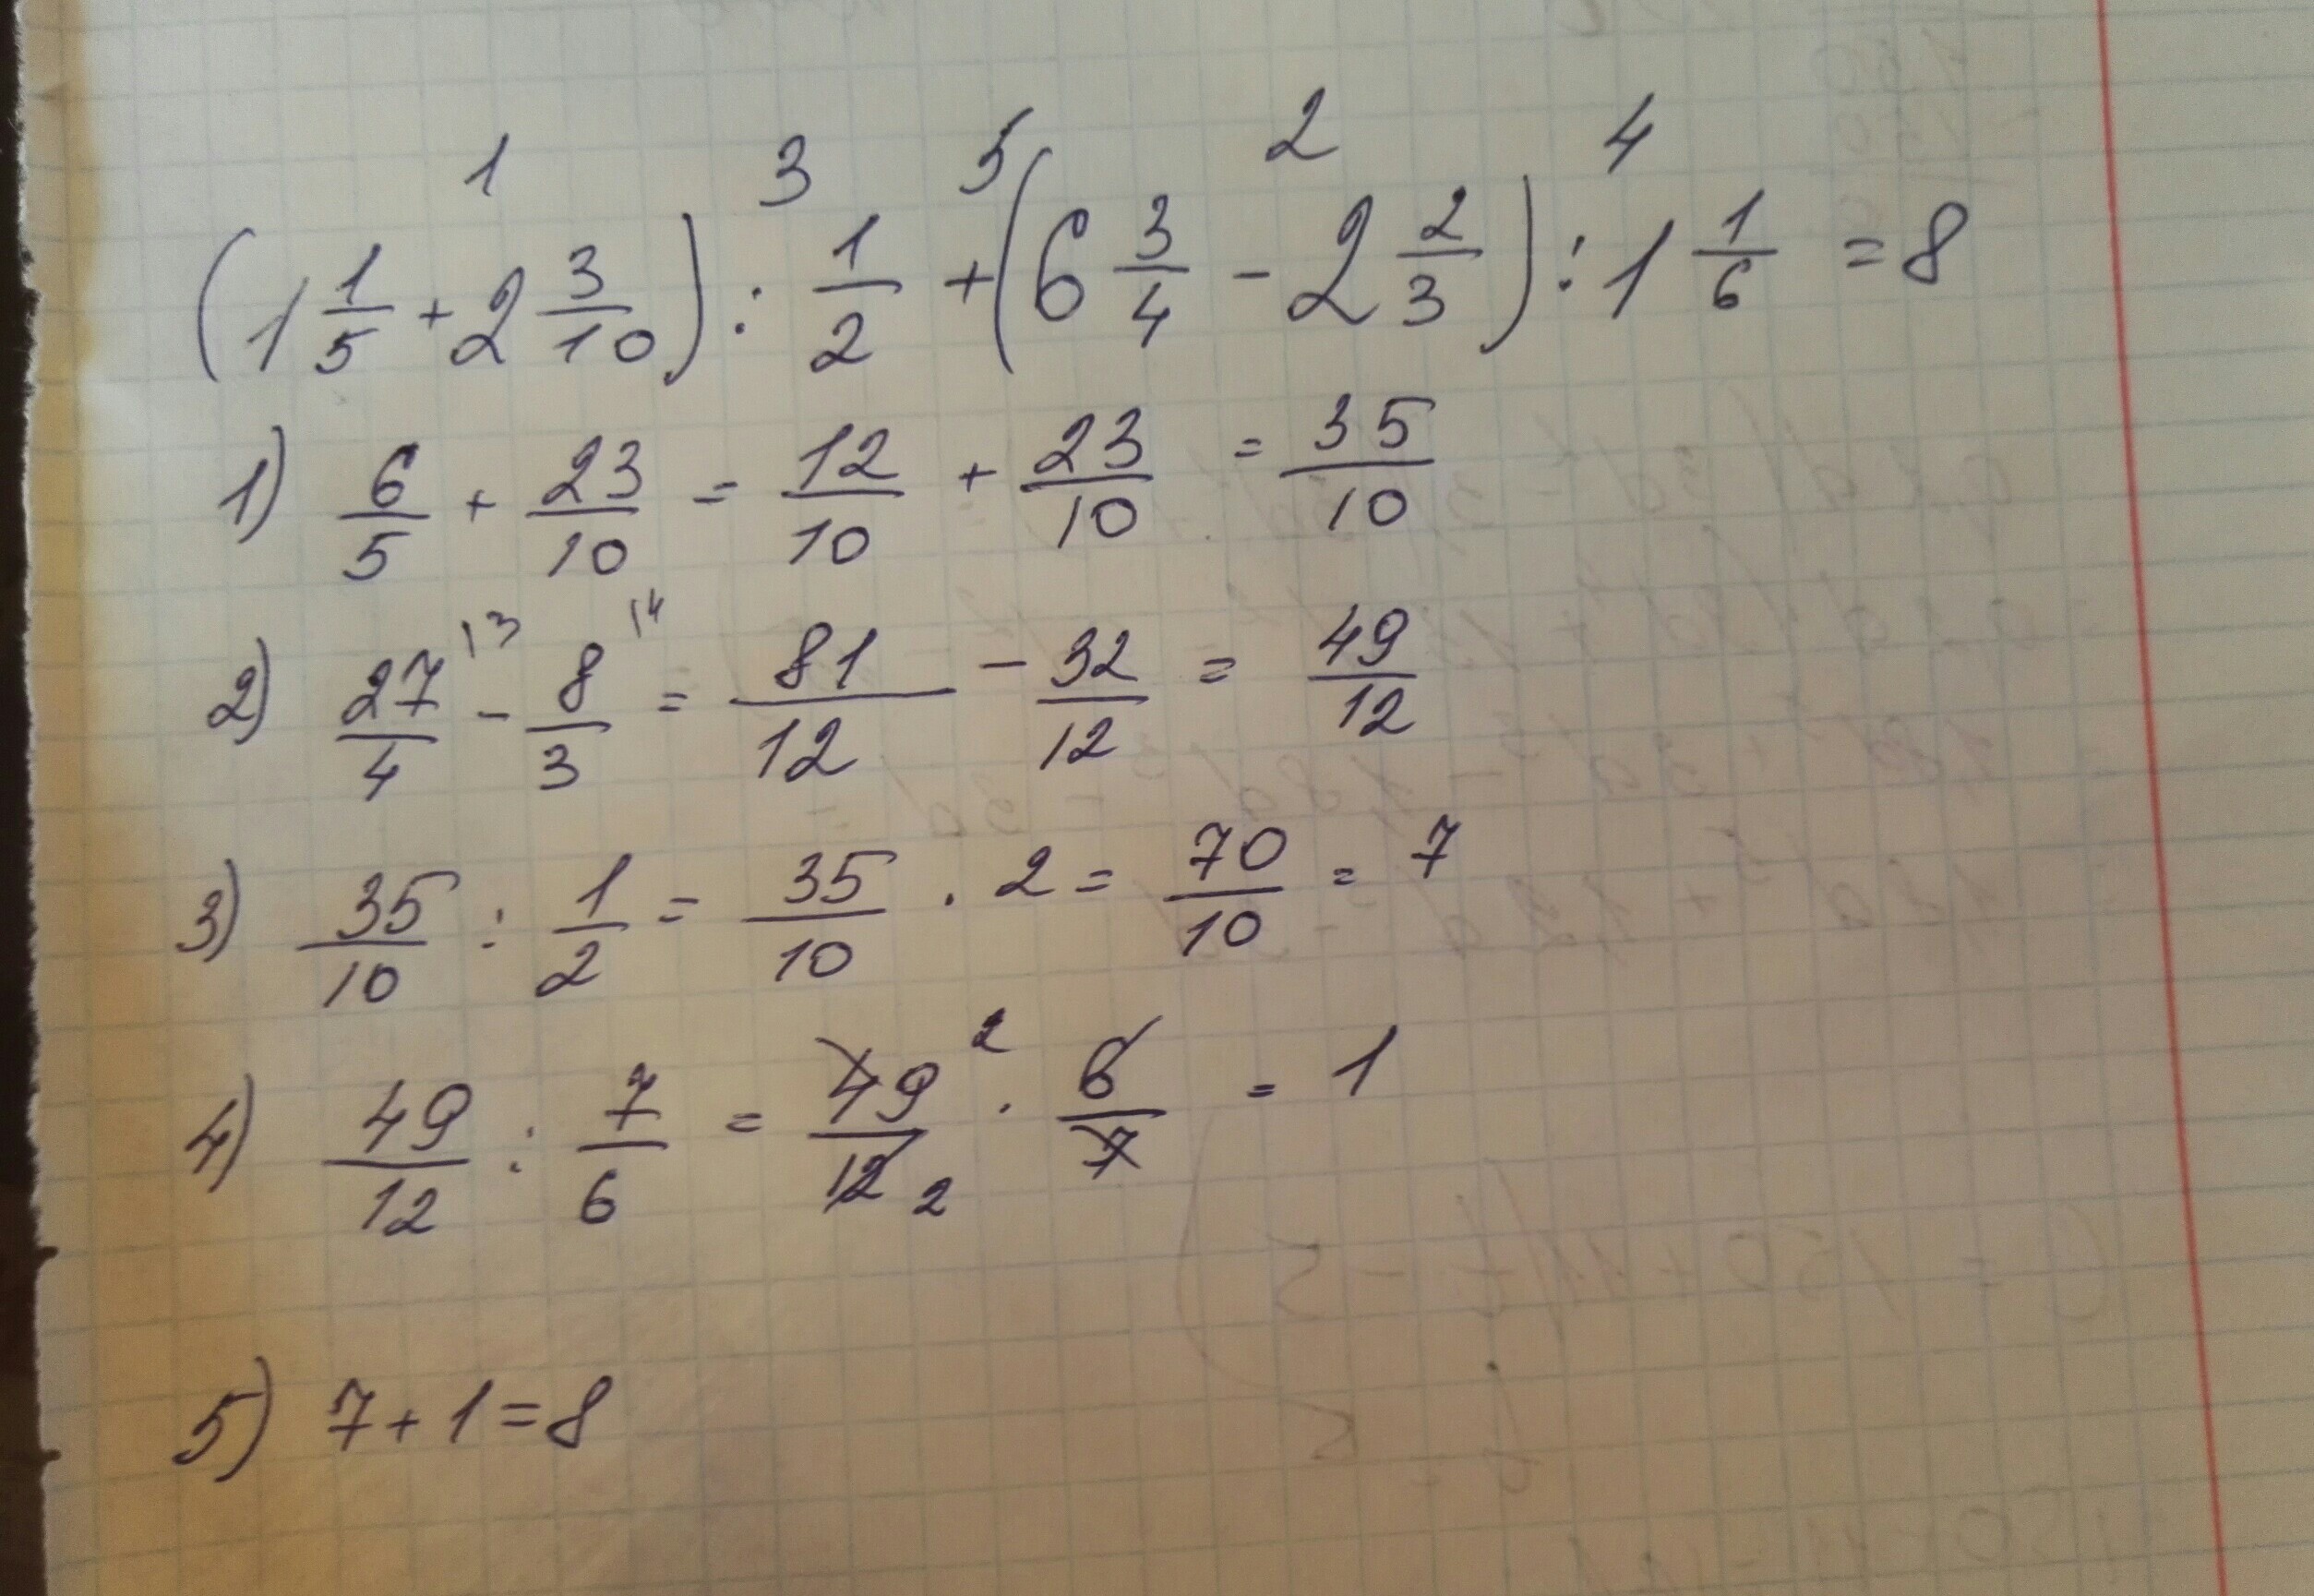 1 3 5 2 4
(1 1/5 + 2 3/10) : 1/2 + (6 3/4 - 2 2/3) : 1 1/6 = 8
1) 6/5 + 23/10 = 12/10 + 23/10 = 35/10
2) 27/4 |3 - 8/3 |4 = 81/12 - 32/12 = 49/12
3) 35/10 : 1/2 = 35/10 . 2 = 70/10 = 7
4) 49/12 : 7/6 = 49 2/12 2 . 6/7 = 1
5) 7 + 1 = 8